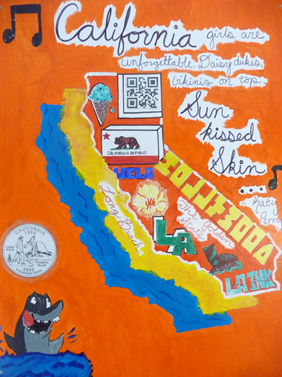 California girls are
unforgettable. Daisy dukes,
bikinis on top.
Sun
kissed
Skin
Katy
CALIFORNIA REPUBLIC
HOLLYWOOD
Long Beach
The golden
LA
LA INK
CALIFORNIA
1850